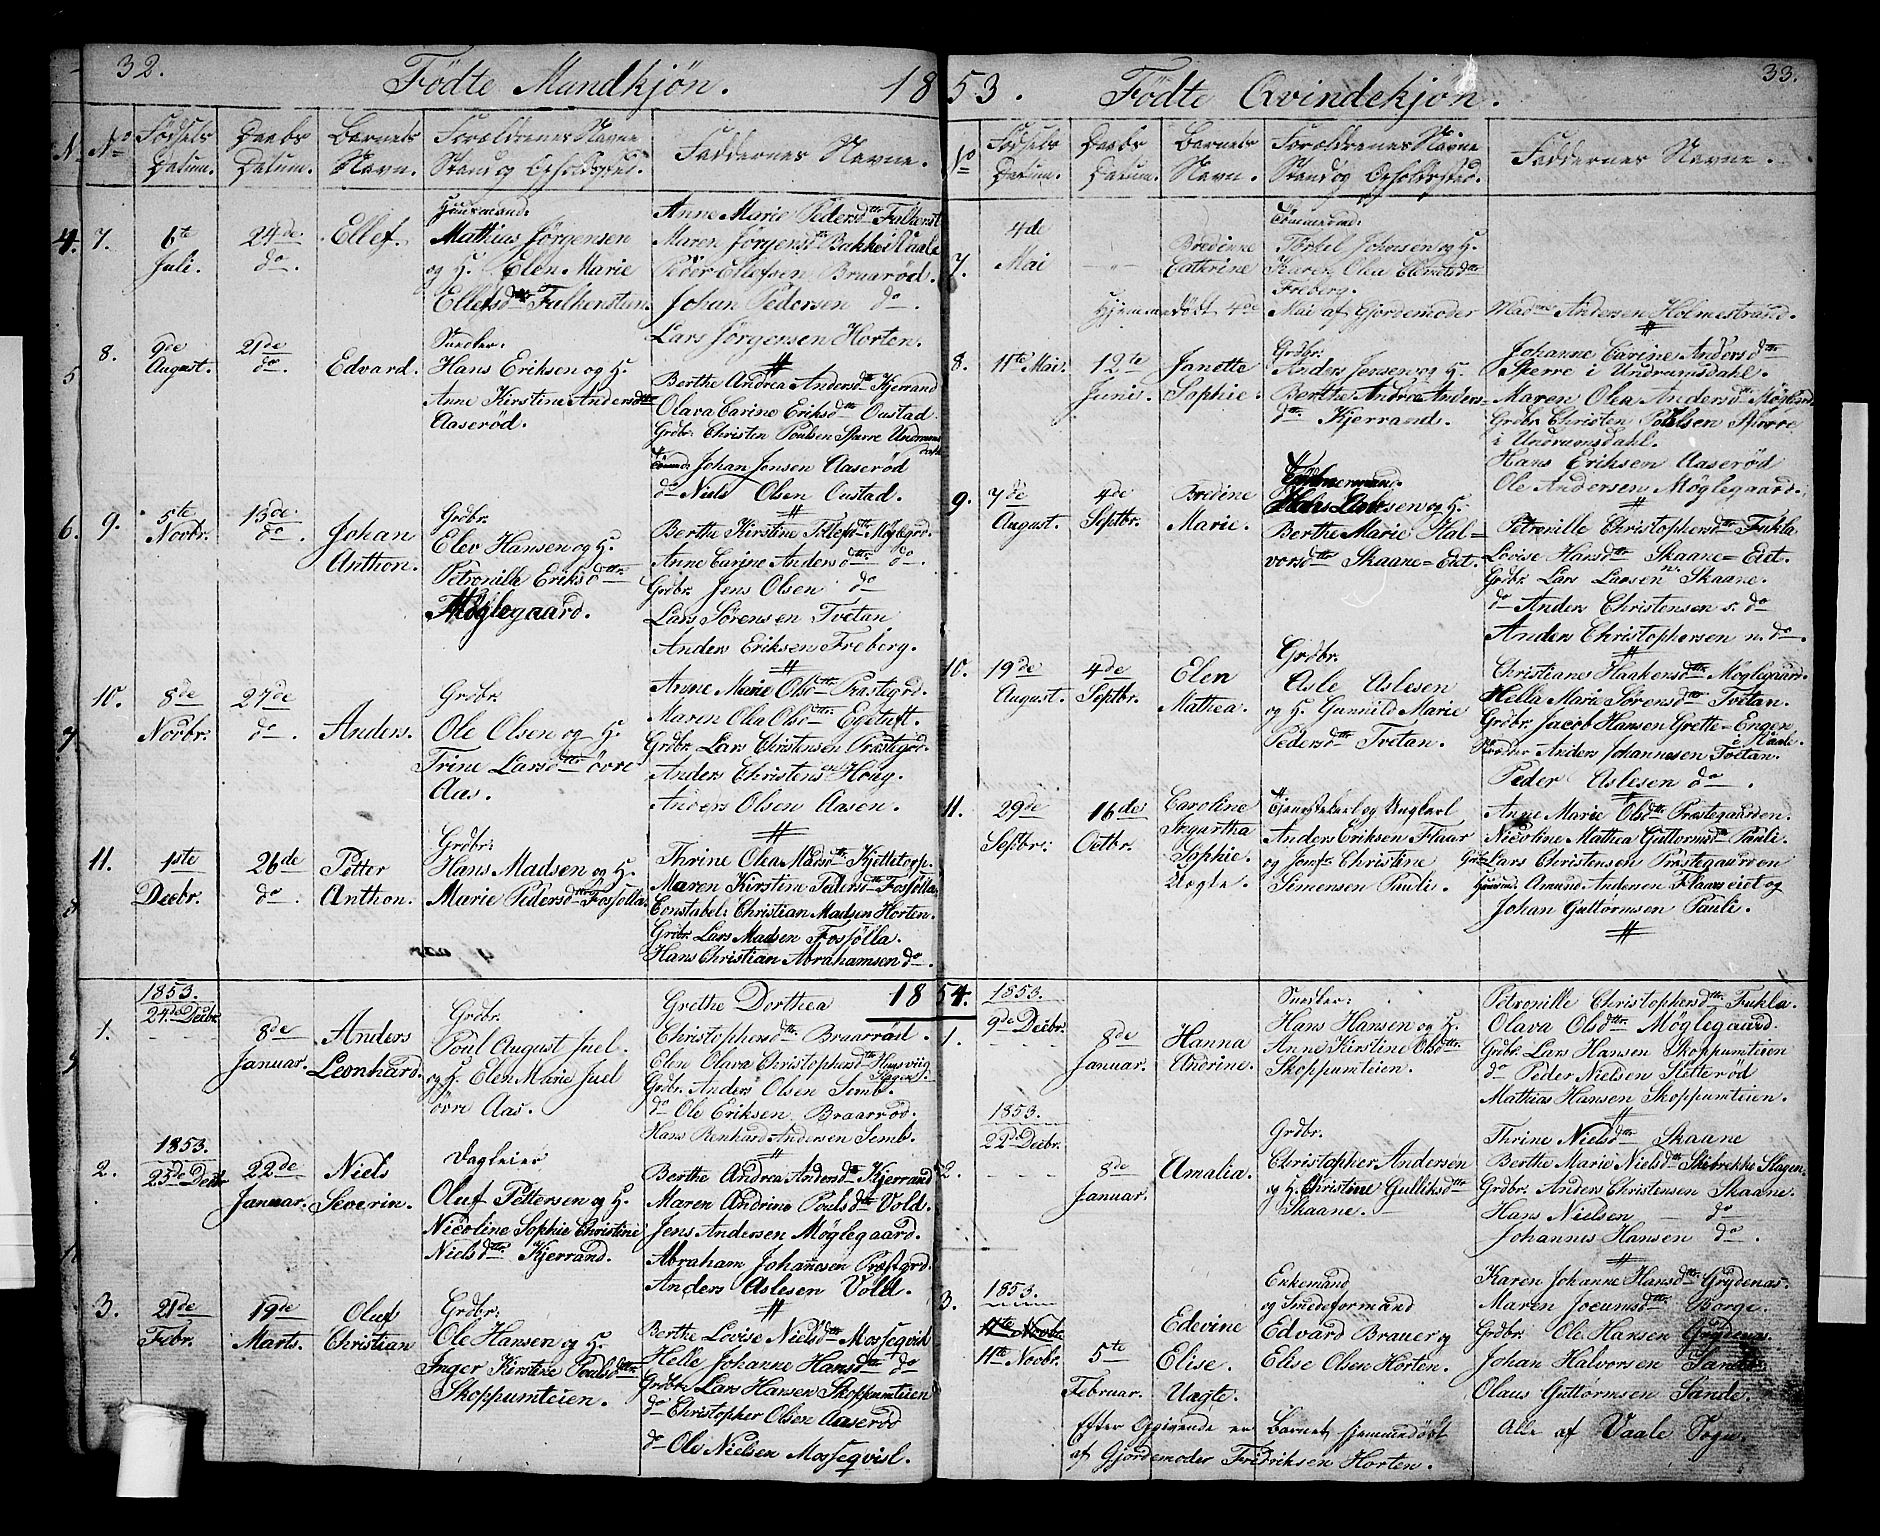 32.
Fødte Mandkjøn. 18
N. No Fødsels Datum. Daabs Datum. Barnets Navn. Forældrenes Navne Stand og Opholdssted. Faddernes Navne.
4. 7. 6te Juli. 24de do. Ellef.
Huusmand.
Mathias Jørgensen
og H. Elen Marie
Ellefsdtr Falkensten.
Anne Marie Pedersdtr Falkenst
Maren Jørgensdtr Bakke i Vaale
Peder Ellefsen Bruarød.
Johan Pedersen do.
Lars Jørgensen Horten.
5 8. 9de August. 21de do. Edvard.
Snedker.
Hans Eriksen og H.
Anne Kirstine Andersdtr
Aaserød.
Berthe Andrea Andersdtr Kjerrand
Olava Carine Eriksdtr Oustad.
Grdbr. Christen Poulsen Sperre Undrumsdahl
Tømmd. Johan Jensen Aaserød
do Niels Olsen Oustad.
6. 9. 5te Novbr. 13de do. Johan Anthon.
Grdbr.
Elev Hansen og H.
Petronille Eriksdtr
Møglegaard.
Berthe Kirstine Tollefsdtr Møglegrd.
Anne Carine Andersdtr do.
Grdbr. Jens Olsen do
Lars Sørensen Tvetan
Anders Eriksen Freberg.
7 10. 8de Novbr. 27de do. Anders.
Grdbr.
Ole Olsen og H.
Trine Larsdtr øvre
Aas.
Anne Marie Olsdtr Præstegrd.
Maren Olea Olsdtr Egetuft.
Grdbr. Lars Christensen Præstegrd.
Anders Christensen Houg.
Anders Olsen Aasen.
8 11. 1ste Decbr. 26de do. Petter Anthon.
Grdbr:
Hans Madsen og H.
Marie Pedersdtr Fosfølla.
Thrine Olea Madsdtr Kjettetorp.
Maren Kirstine Pedersdtr Fosfølla
Constabel: Christian Madsen Horten.
Grdbr. Lars Madsen Fosfølla.
Hans Christian Abrahamsen do.
18
1. 1853. 24de Decbr. 8de Januar. Anders Leonhard.
Grdbr.
Poul August Juel.
og H. Elen Marie Juel
øvre Aas.
Grethe Dorthea
Christophersdtr Bruarrød.
Elen Olava Christophersdtr Hansviig Slagen.
Grdbr. Anders Olsen Semb.
do Ole Eriksen Braarrød.
Hans Renhard Andersen Semb.
2. 1853. 25de Decbr 22de Januar. Niels Severin.
Dagleier
Oluf Pettersen og H.
Nicoline Sophie Christine
Nielsdtr Kjerrand.
Berthe Andrea Andersdtr Kjerrand
Maren Andrine Poulsdtr Vold.
Jens Andersen Møglegaard.
Abraham Johansen Præstgrd.
Anders Aslesen Vold.
3. 21de Febr. 19de Marts. Oluf Christian
Grdbr:
Ole Hansen og H.
Inger Kirstine Poulsdtr
Skoppumteien.
Berthe Lovise Nielsdtr Mosseqvisl
Helle Johanne Hansdtr do
Grdbr. Lars Hansen Skoppumteien
do Christopher Olsen Aaserød
do Ole Nielsen Mosseqvisl.
33.
53. Fødte Qvindekjøn.
No Fødsels Datum. Daabs Datum. Barnets Navn. Forældrenes Navne Stand og Opholdssted. Faddernes Navne.
7. 4de Mai Bredinne Cathrine
Tømmermd.
Torkel Johnsen og H.
Karen Olea Ellevsdtr
Freberg.
Hjemmedøbt 4de Mai af Gjordemoder Madme Andersen Holmestrand.
8. 11te Mai. 12te Juni. Janette Sophie.
Grdbr.
Anders Jensen og H.
Berthe Andrea Anders-
dtr Kjerrand.
Johanne Carine Andersdtr
Sperre i Undrumsdahl.
Maren Olea Andersdtr Møglegrd
Grdbr. Christen Poulsen Sperre
i Undrumsdahl.
Hans Eriksen Aaserød
Ole Andersen Møglegaard.
9. 7de August. 4de Septbr. Bredine Marie.
Tømmermand.
Hans Larsen og H.
Berthe Marie Hal-
vorsdtr Skaane-Eiet.
Petronille Christophersdtr Fukla
Lovise Hansdtr Skaane-Eiet.
Grdbr. Lars Larsen n. Skaane.
do Anders Christensen s. do
Anders Christophersen n. do.
10. 19de August. 4de Septbr. Elen Mathea.
Grdbr.
Asle Aslesen
og H. Gunnild Marie
Pedersdtr Tvetan.
Christiane Haakensdtr Møglegaard.
Hella Marie Sørensdtr Tvetan.
Grdbr. Jacob Hansen Grette-Engen i Vaale.
Anders Johannesen Tvetan.
Peder Aslesen do.
11. 29de Septbr: 16de Octbr. Caroline Ingartha Sophie. Uægte.
Tjenestekarl og Ungkarl
Anders Eriksen Fluur
og Jomfr Christine
Simensen Pauli.
Anne Marie Olsdtr Præstegaarden.
Nicoline Mathea Guttormsdtr Pauli.
Grdbr. Lars Christensen Præstegaarden
Huusmd. Amund Andersen Flaarseiet og
Johan Guttormsen Pauli.
54.
1. 1853. 9de Decbr. 8de Januar. Hanna Andrine.
Snedker:
Hans Hansen og H.
Anne Kirstine Olsdtr
Skoppumteien.
Petronille Christophersdtr Fukla.
Olava Olsdtr. Møglegaard.
Grdbr. Lars Hansen Skoppumteien
do Peder Nielsen Sletterød
Mathias Hansen Skoppumteien.
2. 1853. 22de Decbr. 8de Januar. Amalia.
Grdbr.
Christopher Andersen
og H. Christine Gulliksdtr
Skaane.
Thrine Nielsdtr Skaane
Berthe Marie Nielsdtr Skibrekke Slagen.
Grdbr. Anders Christensen Skaane.
Hans Nielsen do
Johannes Hansen do.
3. 1853. 11te Novbr. 11te Novbr. 5te Februar. Edevine Elise. Uægte.
Enkemand
og Smedeformand
Edvard Brauer og
Elise Olsen Horten.
Karen Johanne Hansdtr Grydenas.
Maren Jocumsdtr Borge.
Grdbr. Ole Hansen Grydenas.
Johan Halvorsen Sande
Olaus Guttormsen Sande.
Efter Opgivende er Barnet hjemmedøbt
af Gjordemoder Fridriksen Horten.
Alle af Vaale Sogn.